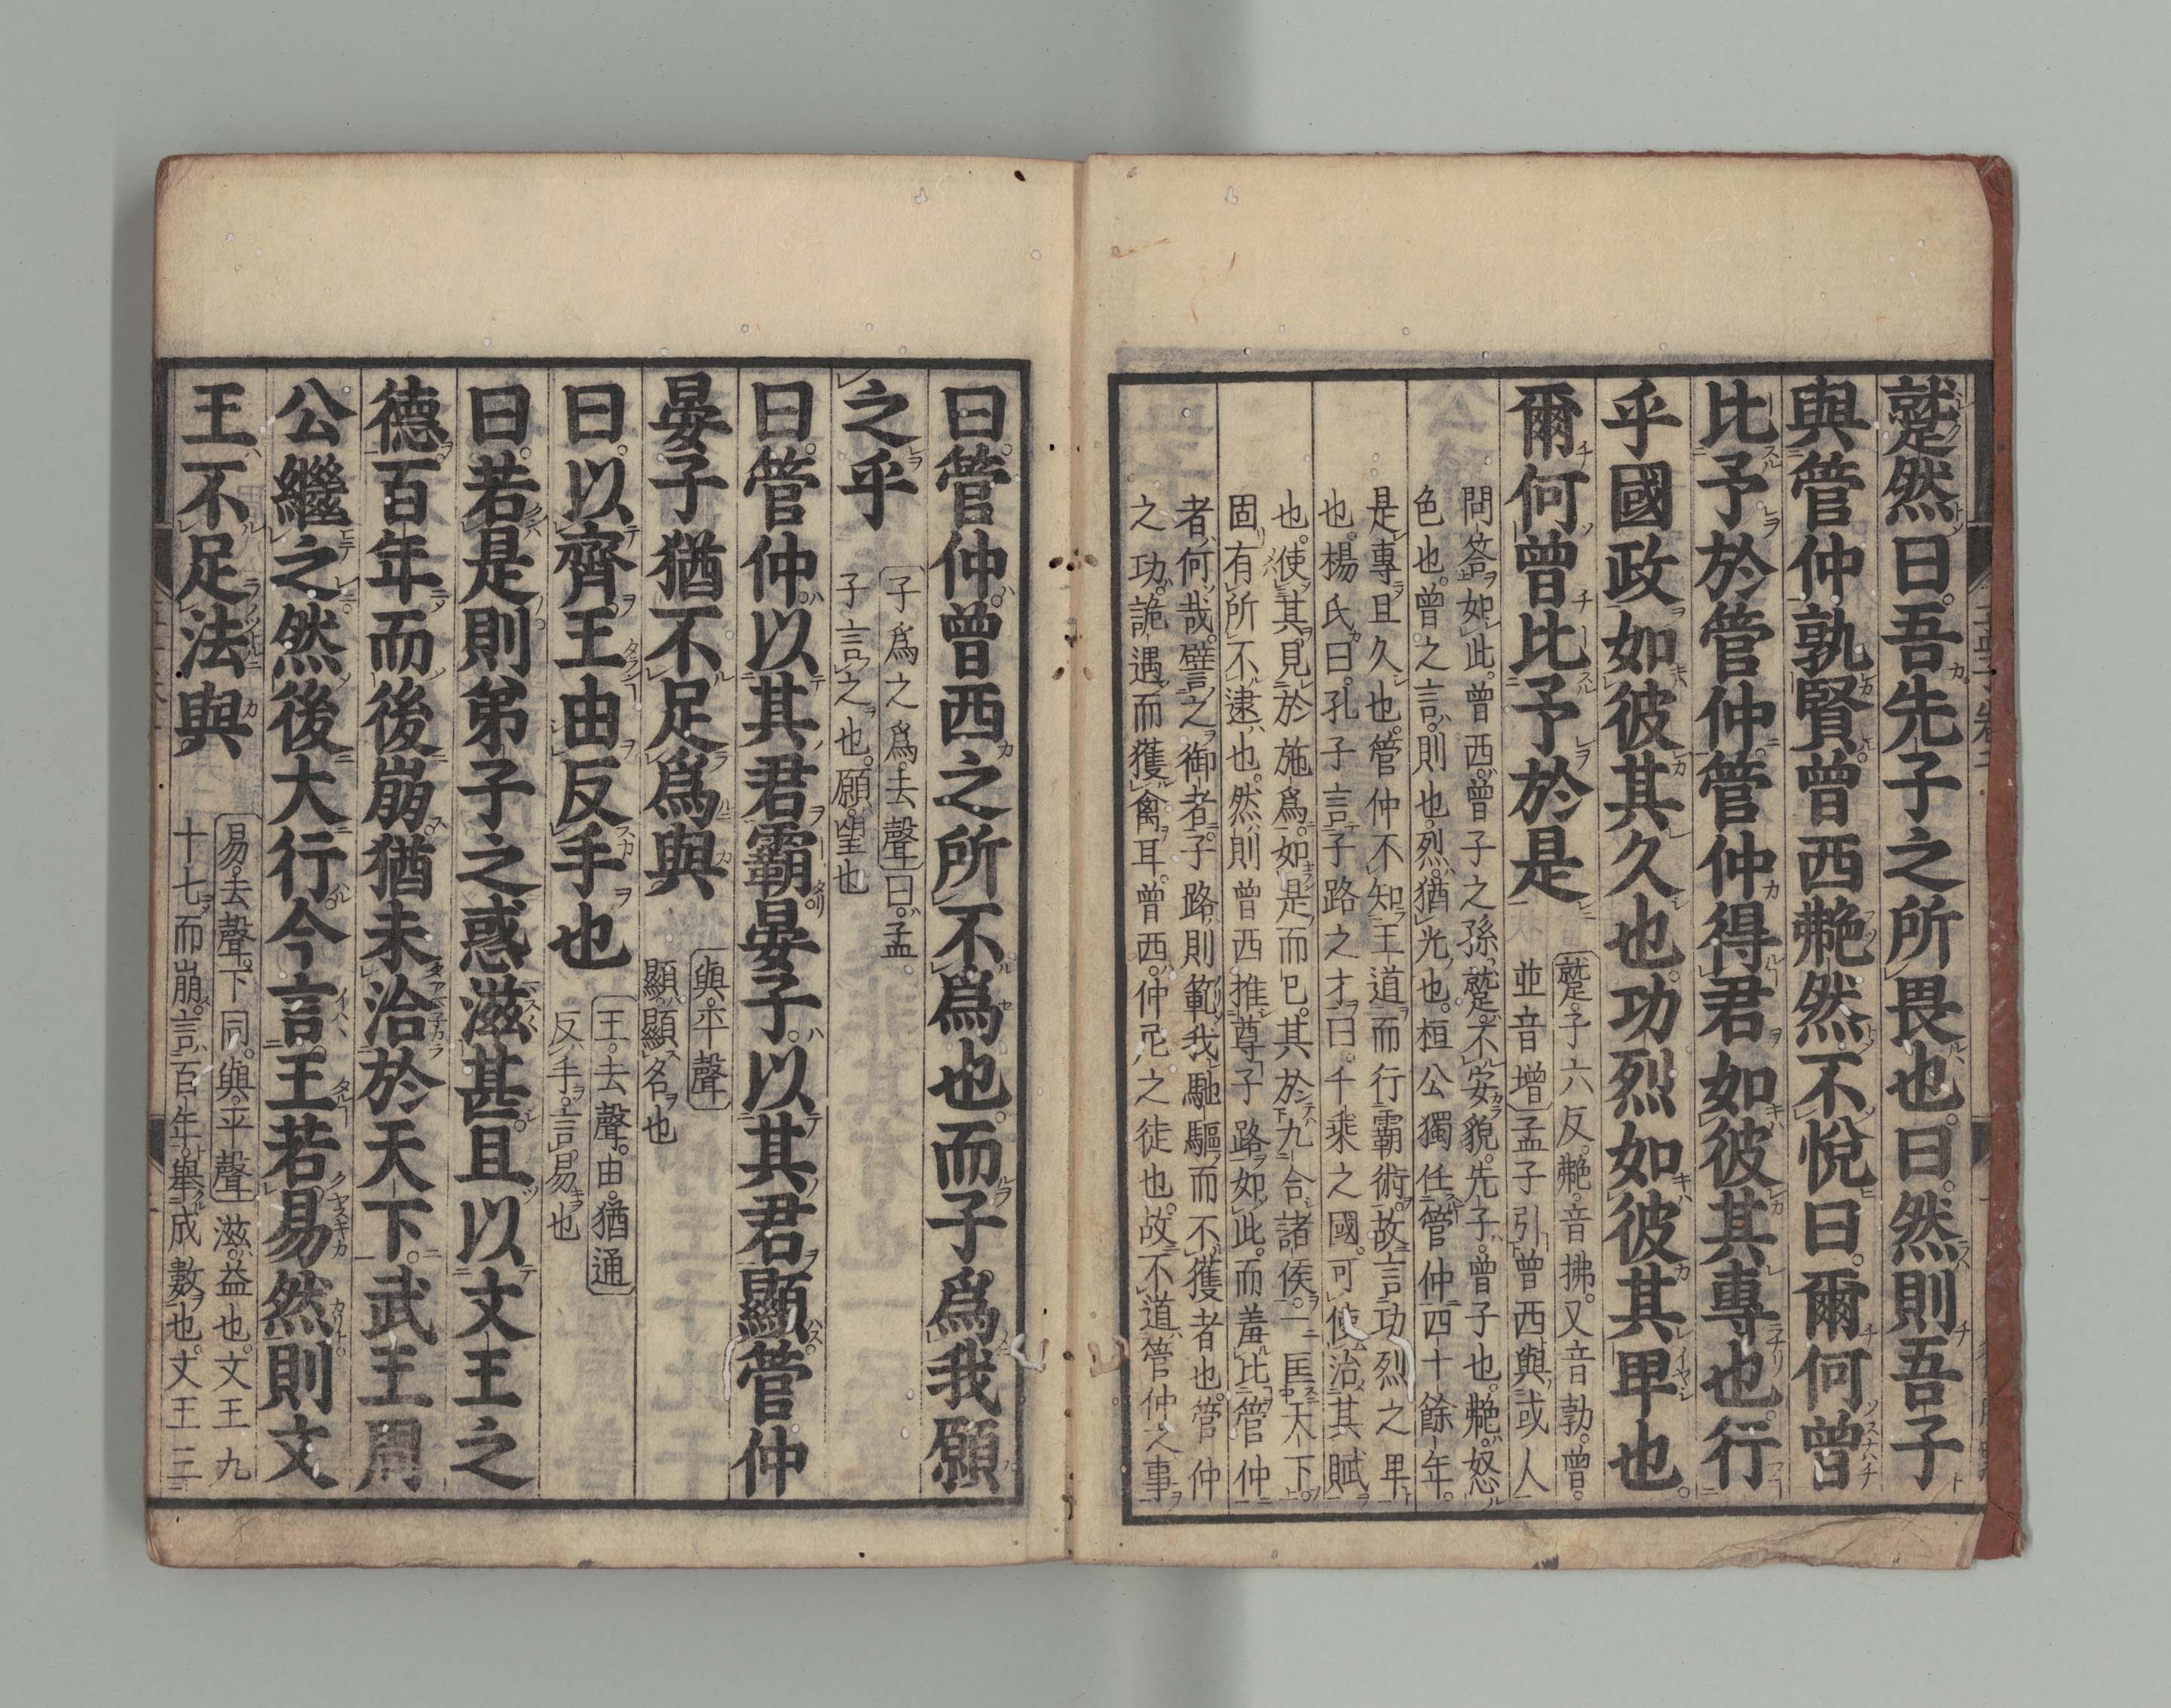 蹵然曰。吾先子之所畏也。曰。然則吾子
與管仲孰賢。曾西艴然不悅曰。爾何曾
比予於管仲。管仲得君如彼其專也。行
乎國政如彼其久也。功烈如彼其卑也。
爾何曾比予於是
蹵。子六反。艴。音拂。又音勃。曾。
並音增 孟子引曾西與或人
問答如此。曾西。曾子之孫。蹵。不安貌。先子。曾子也。艴。怒
色也。曾之言。則也。烈。猶光也。桓公獨任管仲四十餘年。
是專且久也。管仲不知王道而行霸術。故言功烈之卑
也。楊氏曰。孔子言子路之才曰。千乘之國。可使治其賦
也。使其見於施爲。如是而已。其於九合諸侯。一匡天下。
固有所不逮也。然則曾西推尊子路如此。而羞比管仲
者。何哉。譬之御者。子路則範我馳驅而不獲者也。管仲
之功。詭遇而獲禽耳。曾西。仲尼之徒也。故不道管仲之事
曰。管仲。曾西之所不爲也。而子爲我願
之乎
子爲之爲。去聲 曰。孟
子言之也。願。望也
曰。管仲以其君霸。晏子以其君顯。管仲
晏子猶不足爲與
與。平聲
顯。顯名也
曰。以齊王由反手也
王。去聲。由。猶通
反手。言易也
曰。若是。則弟子之惑滋甚。且以文王之
德。百年而後崩。猶未洽於天下。武王周
公繼之。然後大行。今言王若易然。則文
王不足法與
易。去聲。下同。與。平聲 滋。益也。文王九
十七而崩。言百年。舉成數也。文王三